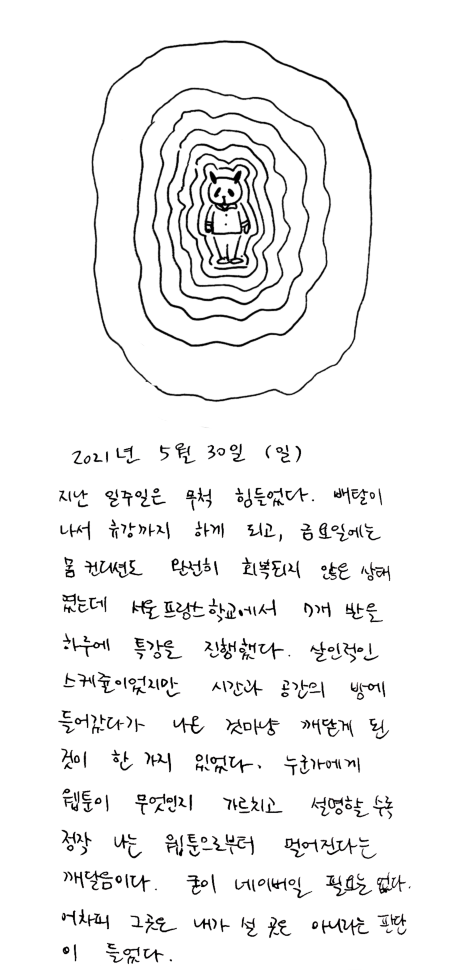 2021년 5월 30일 (일)
지난 일주일은 무척 힘들었다. 배탈이
나서 휴강까지 하게 되고, 금요일에는
몸 컨디션도 완전히 회복되지 않은 상태
였는데 서울프랑스학교에서 7개 반을
하루에 특강을 진행했다. 살인적인
스케쥴이었지만 시간과 공간의 방에
들어갔다가 나온 것마냥 깨닫게 된
것이 한 가지 있었다. 누군가에게
웹툰이 무엇인지 가르치고 설명할수록
정작 나는 웹툰으로부터 멀어진다는
깨달음이다. 굳이 네이버일 필요는 없다.
어차피 그곳은 내가 설 곳은 아니라는 판단
이 들었다.